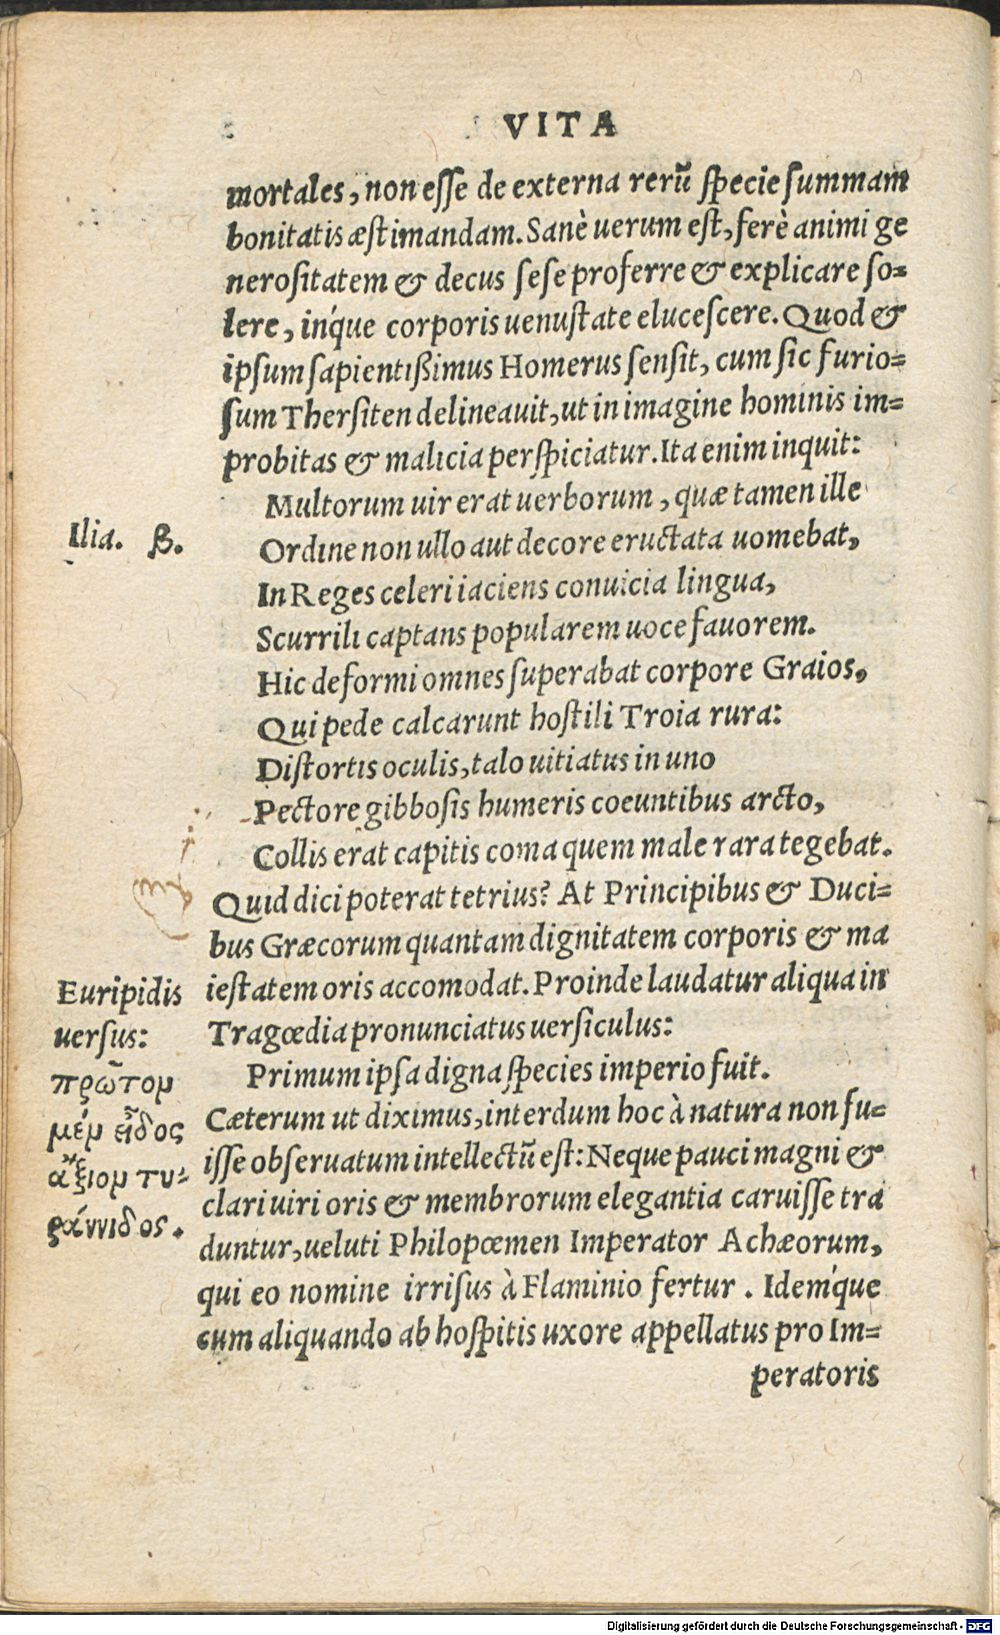 VITA
mortales, non esse de externa rerũ specie summam
bonitatis æstimandam. Sanè uerum est, ferè animi ge
nerositatem & decus sese proferre & explicare so-
lere, in'que corporis uenustate elucescere. Quod &
ipsum sapientißimus Homerus sensit, cum sic furio-
sum Thersiten delineauit, ut in imagine hominis im-
probitas & malicia perspiciatur. Ita enim inquit:
Multorum uir erat uerborum, quæ tamen ille
Ilia. β.
Ordine non ullo aut decore eructata uomebat,
In Reges celeri iaciens conuicia lingua,
Scurrili captans popularem uoce fauorem.
Hic deformi omnes superabat corpore Graios,
Qui pede calcarunt hostili Troia rura:
Distortis oculis, talo uitiatus in uno
Pectore gibbosis humeris coeuntibus arcto,
Collis erat capitis coma quem male rara tegebat.
Quid dici poterat tetrius? At Principibus & Duci-
bus Græcorum quantam dignitatem corporis & ma
iestatem oris accomodat. Proinde laudatur aliqua in
Tragœdia pronunciatus uersiculus:
Primum ipsa digna species imperio fuit.
Euripidis
uersus:
πρῶτομ
μέμ εἶδος
ἄξιομ τυ-
ράννιδος.
Cæterum ut diximus, interdum hoc à natura non fu-
isse obseruatum intellectũ est: Neque pauci magni &
clari uiri oris & membrorum elegantia caruisse tra
duntur, ueluti Philopœmen Imperator Achæorum,
qui eo nomine irrisus à Flaminio fertur. Idem'que
cum aliquando ab hospitis uxore appellatus pro Im-
peratoris
Digitalisierung gefördert durch die Deutsche Forschungsgemeinschaft - DFG